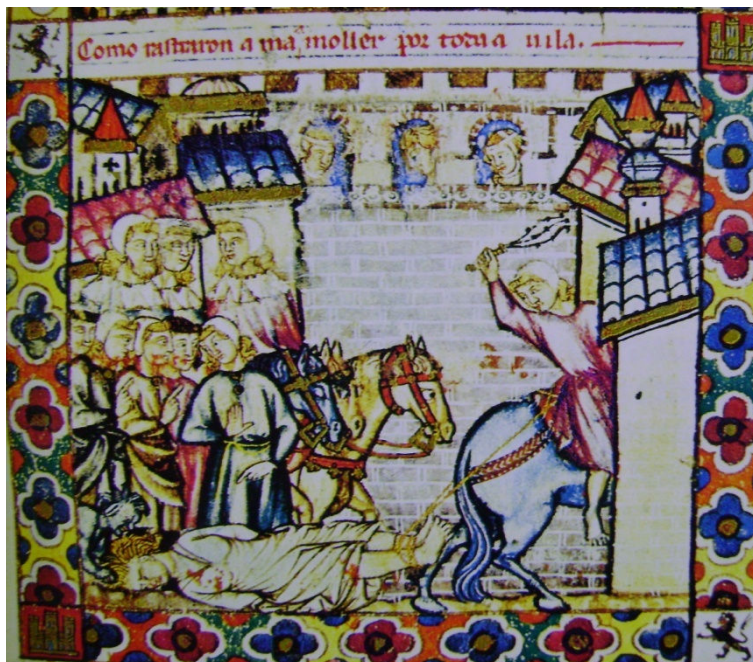 Como rastraron a ma moller por toda a uila.